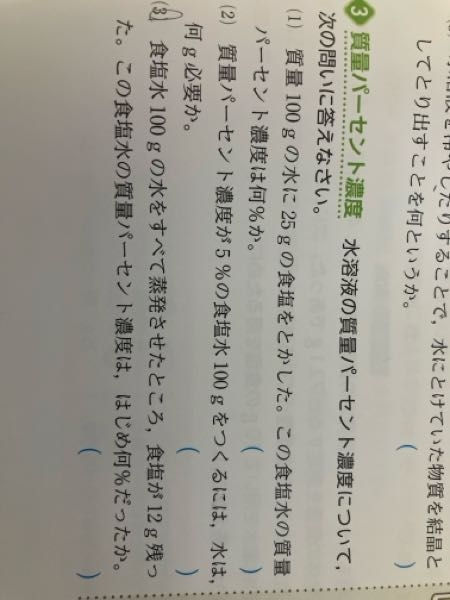 してとり出すことを何というか。 ( )
3 質量パーセント濃度 水溶液の質量パーセント濃度について,
次の問いに答えなさい。
(1) 質量100gの水に25gの食塩をとかした。この食塩水の質量
パーセント濃度は何%か。 ( )
(2) 質量パーセント濃度が5%の食塩水100gをつくるには,水は,
何g必要か。 ( )
(3) 食塩水100gの水をすべて蒸発させたところ,食塩が12g残っ
た。この食塩水の質量パーセント濃度は,はじめ何%だったか。
( )